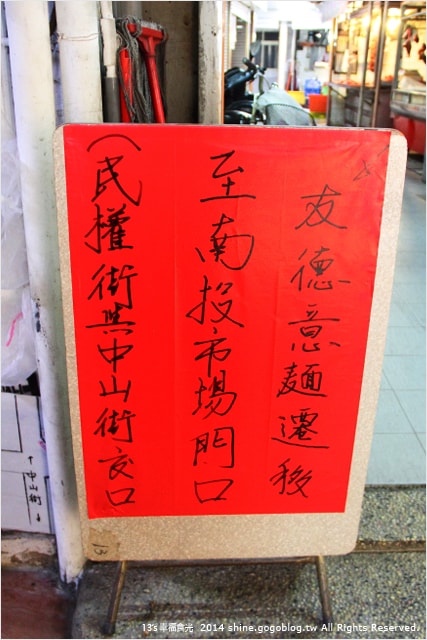 友德意麵遷移
至南投市場門口
(民權街與中山街交口
↑中山街↓
13
13's幸福食光 2014 shine.gogoblog.tw All Rights Reserved.